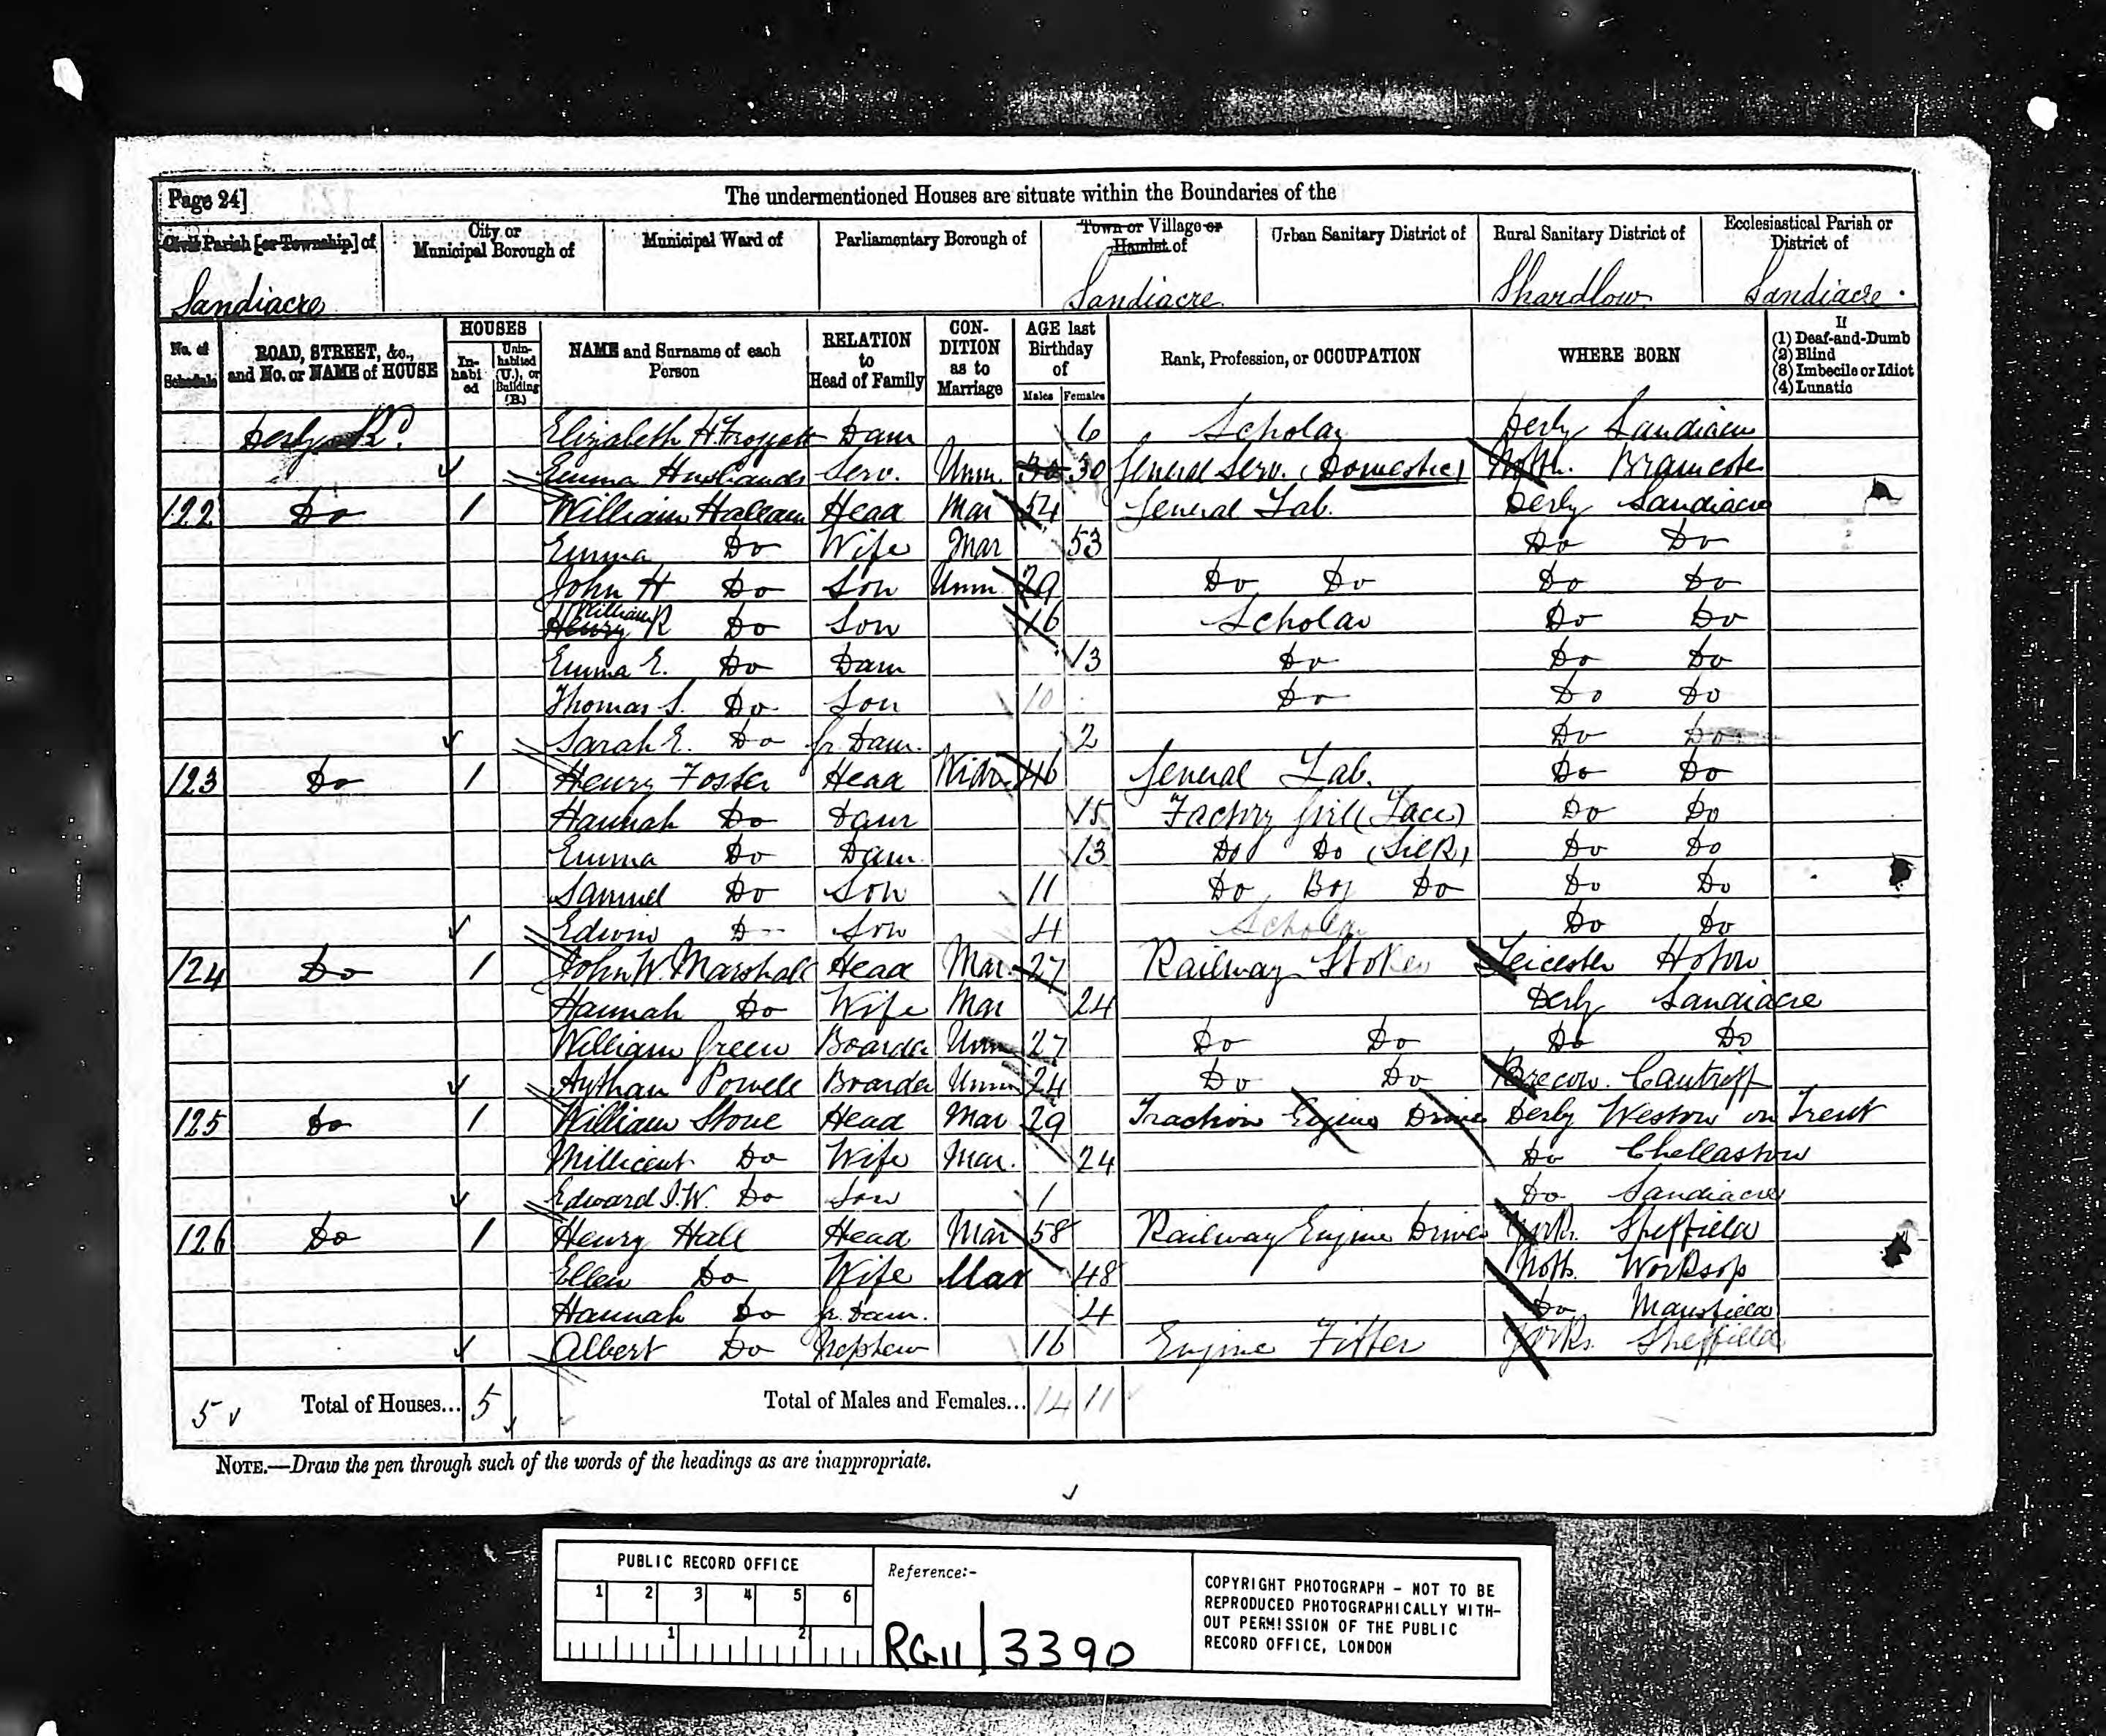 Page 24]
The undermentioned Houses are situate within the Boundaries of the
Civil Parish [or Township] of
City or Municipal Borough of
Municipal Ward of
Parliamentary Borough of
Town or Village or Hamlet of
Urban Sanitary District of
Rural Sanitary District of
Ecclesiastical Parish or District of
Sandiacre Sandiacre Shardlow Sandiacre
No. of Schedule
ROAD, STREET, &c., and No. or NAME of HOUSE
HOUSES
In-habited
Unin-habited (U.), or Building (B.)
NAME and Surname of each Person
RELATION to Head of Family
CON-DITION as to Marriage
AGE last Birthday of
Males Females
Rank, Profession, or OCCUPATION
WHERE BORN
If
(1) Deaf-and-Dumb
(2) Blind
(3) Imbecile or Idiot
(4) Lunatic
Derby Rd. Elizabeth H. Froggatt Daur 6 Scholar Derby Sandiacre
Emma Husbands Serv. Unm. 30 30 General Serv. (Domestic) Notts. Bramcote
122 Do 1 William Hallam Head Mar 54 General Lab. Derby Sandiacre
Emma Do Wife Mar 53 Do Do
John H Do Son Unm 29 Do Do Do Do
Henry William R Do Son 16 Scholar Do Do
Emma E. Do Daur 13 Do Do Do
Thomas S. Do Son 10 Do Do Do
Sarah E. Do Gr. Daur. 2 Do Do
123 Do 1 Henry Foster Head Widr 46 General Lab. Do Do
Hannah Do Daur 15 Factory Girl (Lace) Do Do
Emma Do Daur 13 Do Do (Silk) Do Do
Samuel Do Son 11 Do Boy Do Do Do
Edwin Do Son 4 Scholar Do Do
124 Do 1 John W. Marshall Head Mar. 27 Railway Stoker Leicester Hoton
Hannah Do Wife Mar 24 Derby Sandiacre
William Green Boarder Unm 27 Do Do Do Do
Aythan Powell Boarder Unm 24 Do Do Brecon. Cantriff
125 Do 1 William Stone Head Mar 29 Traction Engine Driver Derby Weston on Trent
Millicent Do Wife Mar. 24 Do Chellaston
Edward J. W. Do Son 1 Do Sandiacre
126 Do 1 Henry Hall Head Mar 58 Railway Engine Driver Yorks. Sheffield
Ellen Do Wife Mar 48 Notts. Worksop
Hannah Do Gr. Daur. 4 Do Mansfield
Albert Do Nephew 16 Engine Fitter Yorks. Sheffield
5 Total of Houses... 5 Total of Males and Females... 14 11
NOTE.—Draw the pen through such of the words of the headings as are inappropriate.
PUBLIC RECORD OFFICE
1 2 3 4 5 6
1 2
Reference:-
RG11/3390
COPYRIGHT PHOTOGRAPH - NOT TO BE
REPRODUCED PHOTOGRAPHICALLY WITH-
OUT PERMISSION OF THE PUBLIC
RECORD OFFICE, LONDON